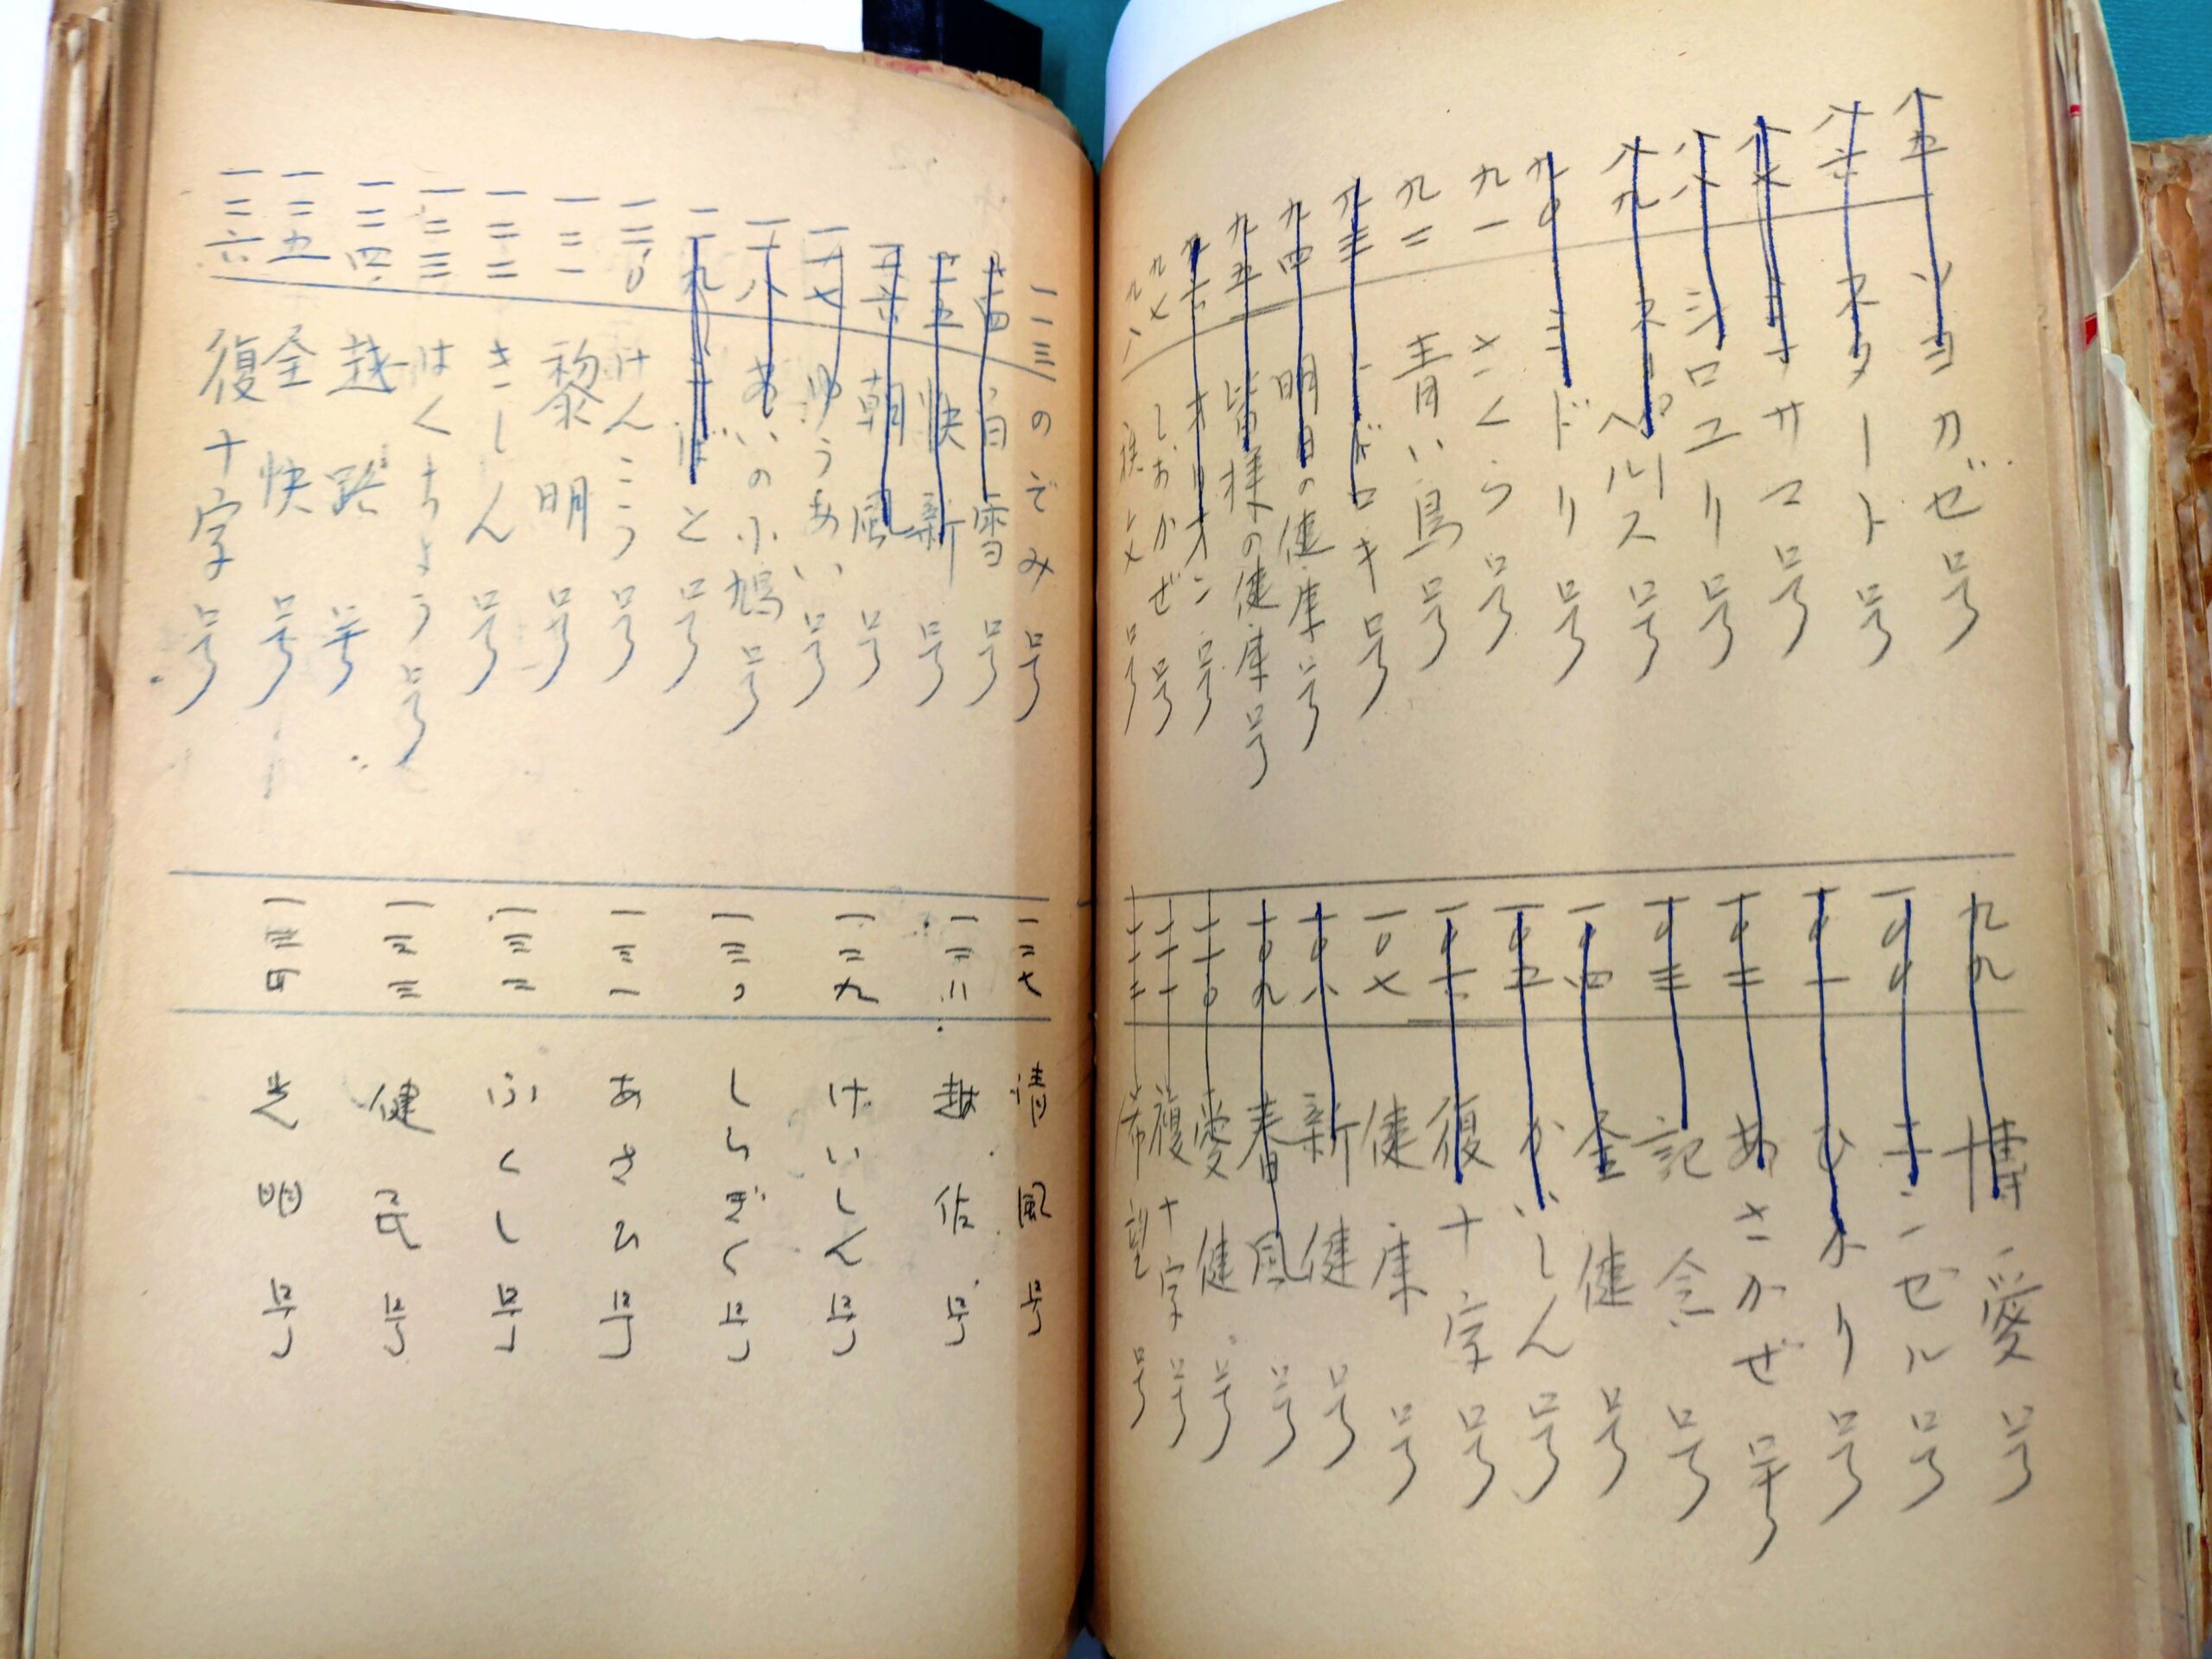 八五 ソヨカゼ号
八六 スタート号
八七 ミナサマ号
八八 シロユリ号
八九 ヘルス号
九〇 ミドリ号
九一 さくら号
九二 青い鳥号
九三 トドロキ号
九四 明日の健康号
九五 皆様の健康号
九六 オリオン号
九七 しおかぜ号
九八 号
九九 博愛号
一〇〇 エンゼル号
一〇一 ひかり号
一〇二 あさかぜ号
一〇三 記念号
一〇四 全健号
一〇五 かいしん号
一〇六 復十字号
一〇七 健康号
一〇八 新健号
一〇九 春風号
一一〇 愛健号
一一一 復十字号
一一二 希望号
一一三 のぞみ号
一一四 白雪号
一一五 快新号
一一六 朝風号
一一七 ゆうあい号
一一八 あいの小鳩号
一一九 きぼと号
一二〇 けんこう号
一二一 黎明号
一二二 さしん号
一二三 はくちょう号
一二四 越路号
一二五 全快号
一二六 復十字号
一二七 清風号
一二八 越佐号
一二九 けいしん号
一三〇 しらぎく号
一三一 あさひ号
一三二 ふくし号
一三三 健民号
一三四 光明号